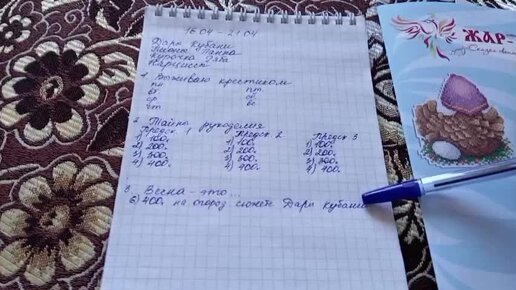 16.04 - 21.04
Дары Кубани
Пионы Панна
Курочка Ряба
Нарцисы
1. Вышиваю крестиком
пн пт
вт сб
ср вс
чт
2. Тайны рукоделия
Предск. 1 Предск 2 Предск 3
1) 100. 1) 100. 1) 100.
2) 200. 2) 200. 2) 200.
3) 300. 3) 300. 3) 300.
4) 400. 4) 400. 4) 400.
3. Весна - это...
6) 400. на огород сюжет Дары Кубани
ЖАР